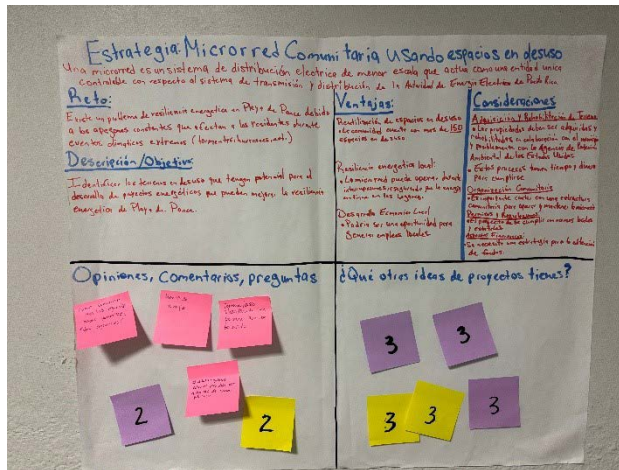 Estrategia: Microrred Comunitaria Usando espacios en desuso
Una microrred es un sistema de distribución electrico de menor escala que actúa como una entidad única
controlable con respecto al sistema de transmisión y distribución de la Autoridad de Energía Eléctrica de Puerto Rico
Reto:
Existe un problema de resiliencia energetica en Playa de Ponce debido
a los apagones constantes que afectan a los residentes durante
eventos climaticos extremos (tormentas, huracanes, etc.)
Descripción/Objetivo:
Identificar los terrenos en desuso que tengan potencial para el
desarrollo de proyectos energéticos que puedan mejorar la resiliencia
energetica de Playa de Ponce.
Ventajas:
Reutilización de espacios en desuso
La comunidad cuenta con mas de 150
espacios en desuso
Resiliencia energetica local:
La microrred puede operar durante
interrupciones asegurando que la energía
continue en los hogares.
Desarrollo Economico Local
Podría ser una oportunidad para
generar empleos locales
Consideraciones
Adquisición y Rehabilitación de Terrenos
Las propiedades deben ser adquiridas y
rehabilitadas en colaboración con el municipio
y posiblemente con la Agencia de Protección
Ambiental de los Estados Unidos.
Estos procesos toman tiempo y dinero
para cumplirse
Organización Comunitaria
Es importante contar con una estructura
comunitaria para operar y mantener
Permisos y Regulaciones
El proyecto debe cumplir con normas locales
y estatales
Se necesita una estrategia para la obtención
de fondos.
Opiniones, Comentarios, preguntas
2
2
¿Qué otras ideas de proyectos tienes?
3
3
3
3
3